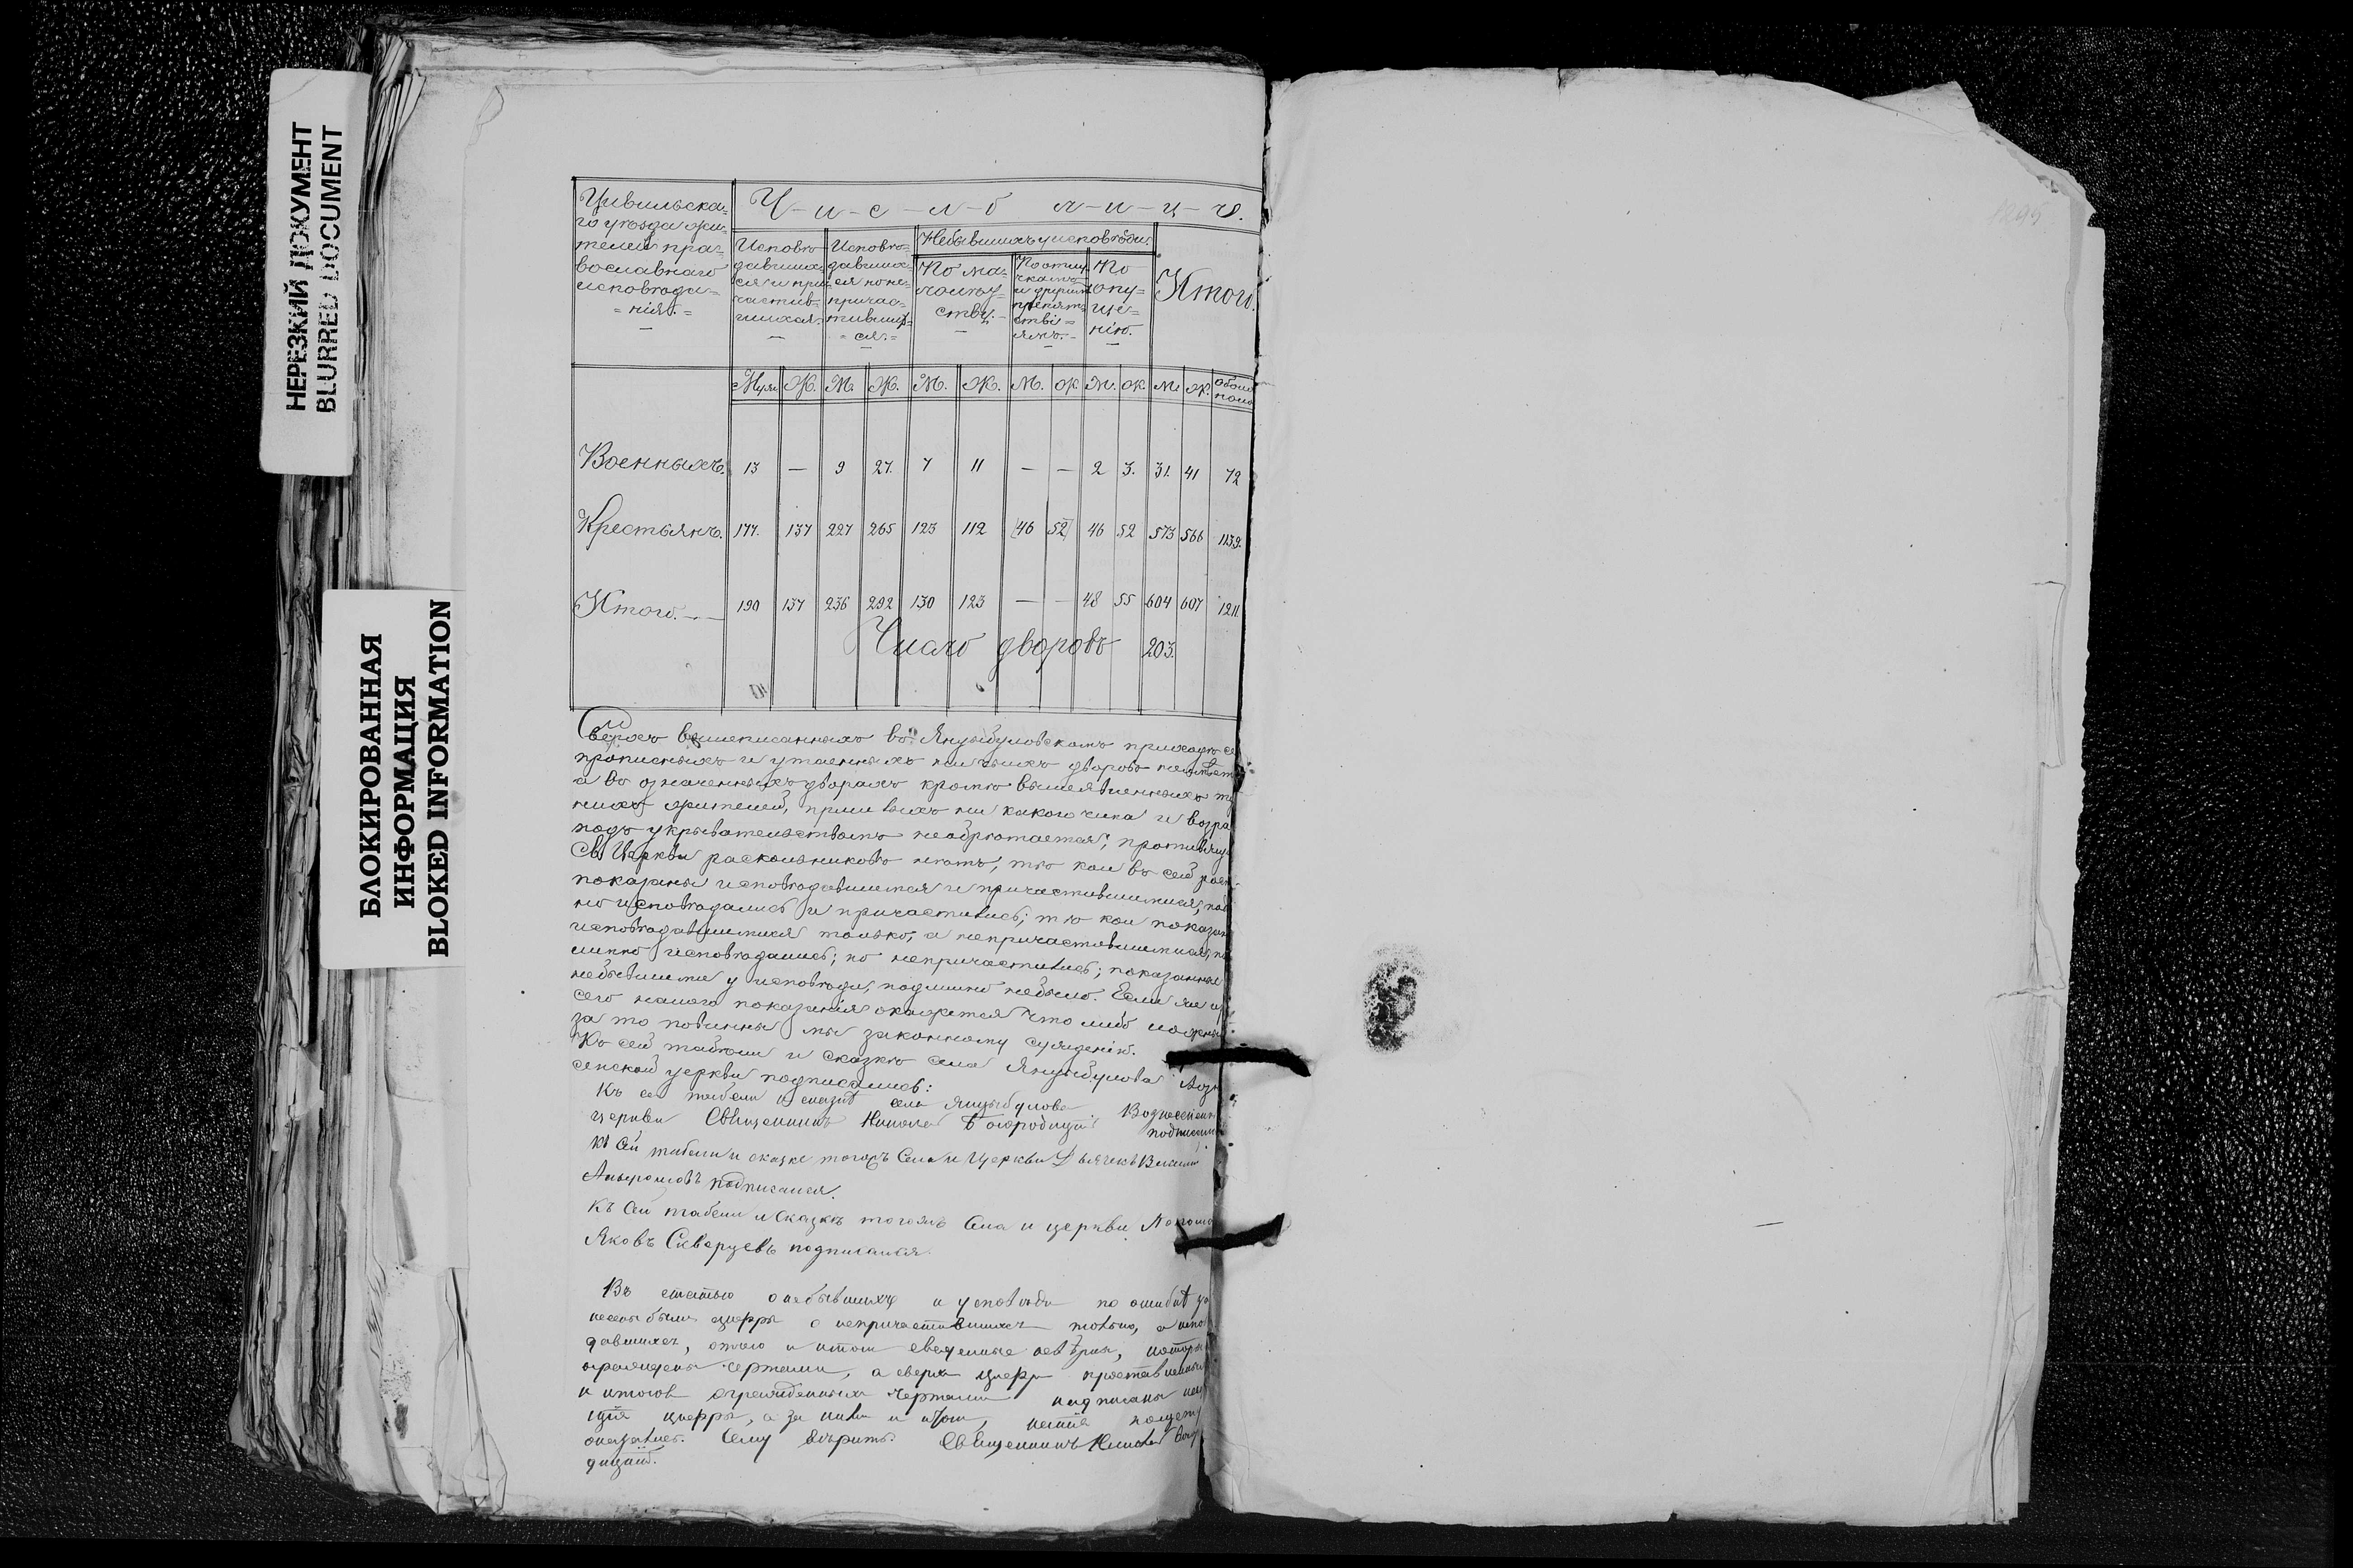 НЕРЕЗКИЙ ДОКУМЕНТ
BLURRED DOCUMENT
БЛОКИРОВАННАЯ
ИНФОРМАЦИЯ
BLOKED INFORMATION
Цивильска=
го уѣзда жи=
телей пра=
вославнаго
исповѣда=
=нія.=
Ч-и-с-л-о л-и-ц-ъ.
Исповѣ=
давших=
ся и при=
частив=
шихся.
Исповѣ=
давших=
ся не
причас=
тивших=
=ся.=
Небывшихъ у исповѣди
По ма=
лолѣт=
ству.
По отлуч=
камъ
и другимъ
препят=
стві=
ямъ.
По
опу=
ще=
нію.
Итого.
Муж. Ж. М. Ж. М. Ж. М. Ж. М. Ж. М. Ж. Обоего пола
Военныхъ. 13 — 9 27. 7 11 — — 2 3. 31. 41 72
Крестьянъ. 177. 137 227 265 123 112 46 52 46 52 573 566 1139.
Итого. 190 137 236 292 130 123 — — 48 55 604 607 1211
Число дворовъ 203.
Сверхъ вышеписанныхъ въ Янцыбуловскомъ приходѣ
прописныхъ и утаенныхъ ни чьихъ дворовъ
а въ означенныхъ дворахъ кромѣ вышеявленныхъ
жителей, пришлыхъ ни какого чина и возра
подъ укрывательствомъ необрѣтается; противящ
Св. Церкви раскольниковъ нѣтъ; тѣ кои въ сей
показаны исповѣдавшимися и причастившимися,
но исповѣдались и причастились; тѣ кои показан
исповѣдавшимися только, а непричастившимися,
линно исповѣдались; но непричастились; показанные
небывшими у исповѣди, подлинно небыло. Если же из
сего нашего показанія окажется что либо ложны
за то повинны мы законному сужденію.
Къ сей табели и сказкѣ села Янцыбулова Возн
сенской церкви подписались:
Къ сей табели и сказкѣ села Янцыбулова Вознесенск
церкви Священникъ Николай Богородицкій подписался
Къ сей табели и сказке тогожъ Села и Церкви Дьячекъ
подписался.
Къ сей табели и Сказкѣ тогожъ Села и церкви Поном
Яковъ Скворцевъ подписался.
Въ статью о небывшихъ у исповѣди по ошибкѣ
несены были цифры о непричастившихся только, а испо
давшихся, отчего и итоги сведенные невѣрны, которы
ограждены чертами, а сверхъ цифръ проставленных
и итоговъ огражденныхъ чертами надписаны
щія цифры, а за ними и итоги,
оказались. Сему вѣрить. Священникъ Николай Бого
дицкій.